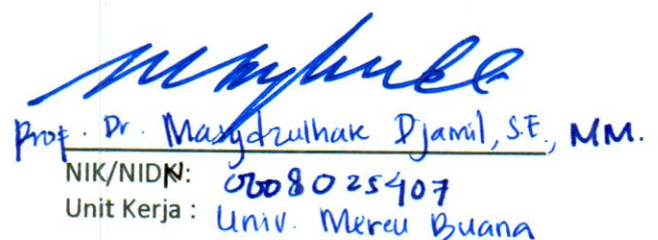 Prof. Dr. Masydzulhak Djamil, S.E., MM.
NIK/NIDN: 0008025407
Unit Kerja : Univ. Mercu Buana